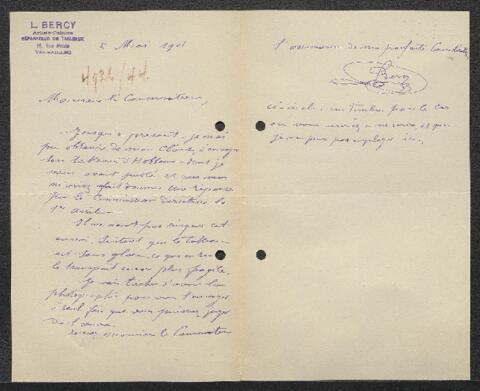 L. BERCY
Artiste-Peintre
RÉPARATEUR DE TABLEAUX
VERSAILLES
5 Mai 1901
4924/44
Monsieur le Conservateur,
Jusqu'à présent je n'ai
pu obtenir de mon client d'envoyer
son tableau d'Hobbema dont je
vous avais parlé et que vous
m'avez fait donner une réponse
par la Commission Directrice le
1er avril.
Il ne veut pas risquer cet
envoi. Surtout que le tableau
est sous glace, ce qui en rend
le transport encore plus fragile.
Je vais tâcher d'avoir la
photographie pour vous l'envoyer
afin que vous puissiez juger
de l'œuvre.
Recevez Monsieur le Conservateur
l'assurance de ma parfaite Considération
Bercy
ci-inclus un timbre pour le cas
où vous auriez à m'écrire et que
je ne peux pas employer ici.